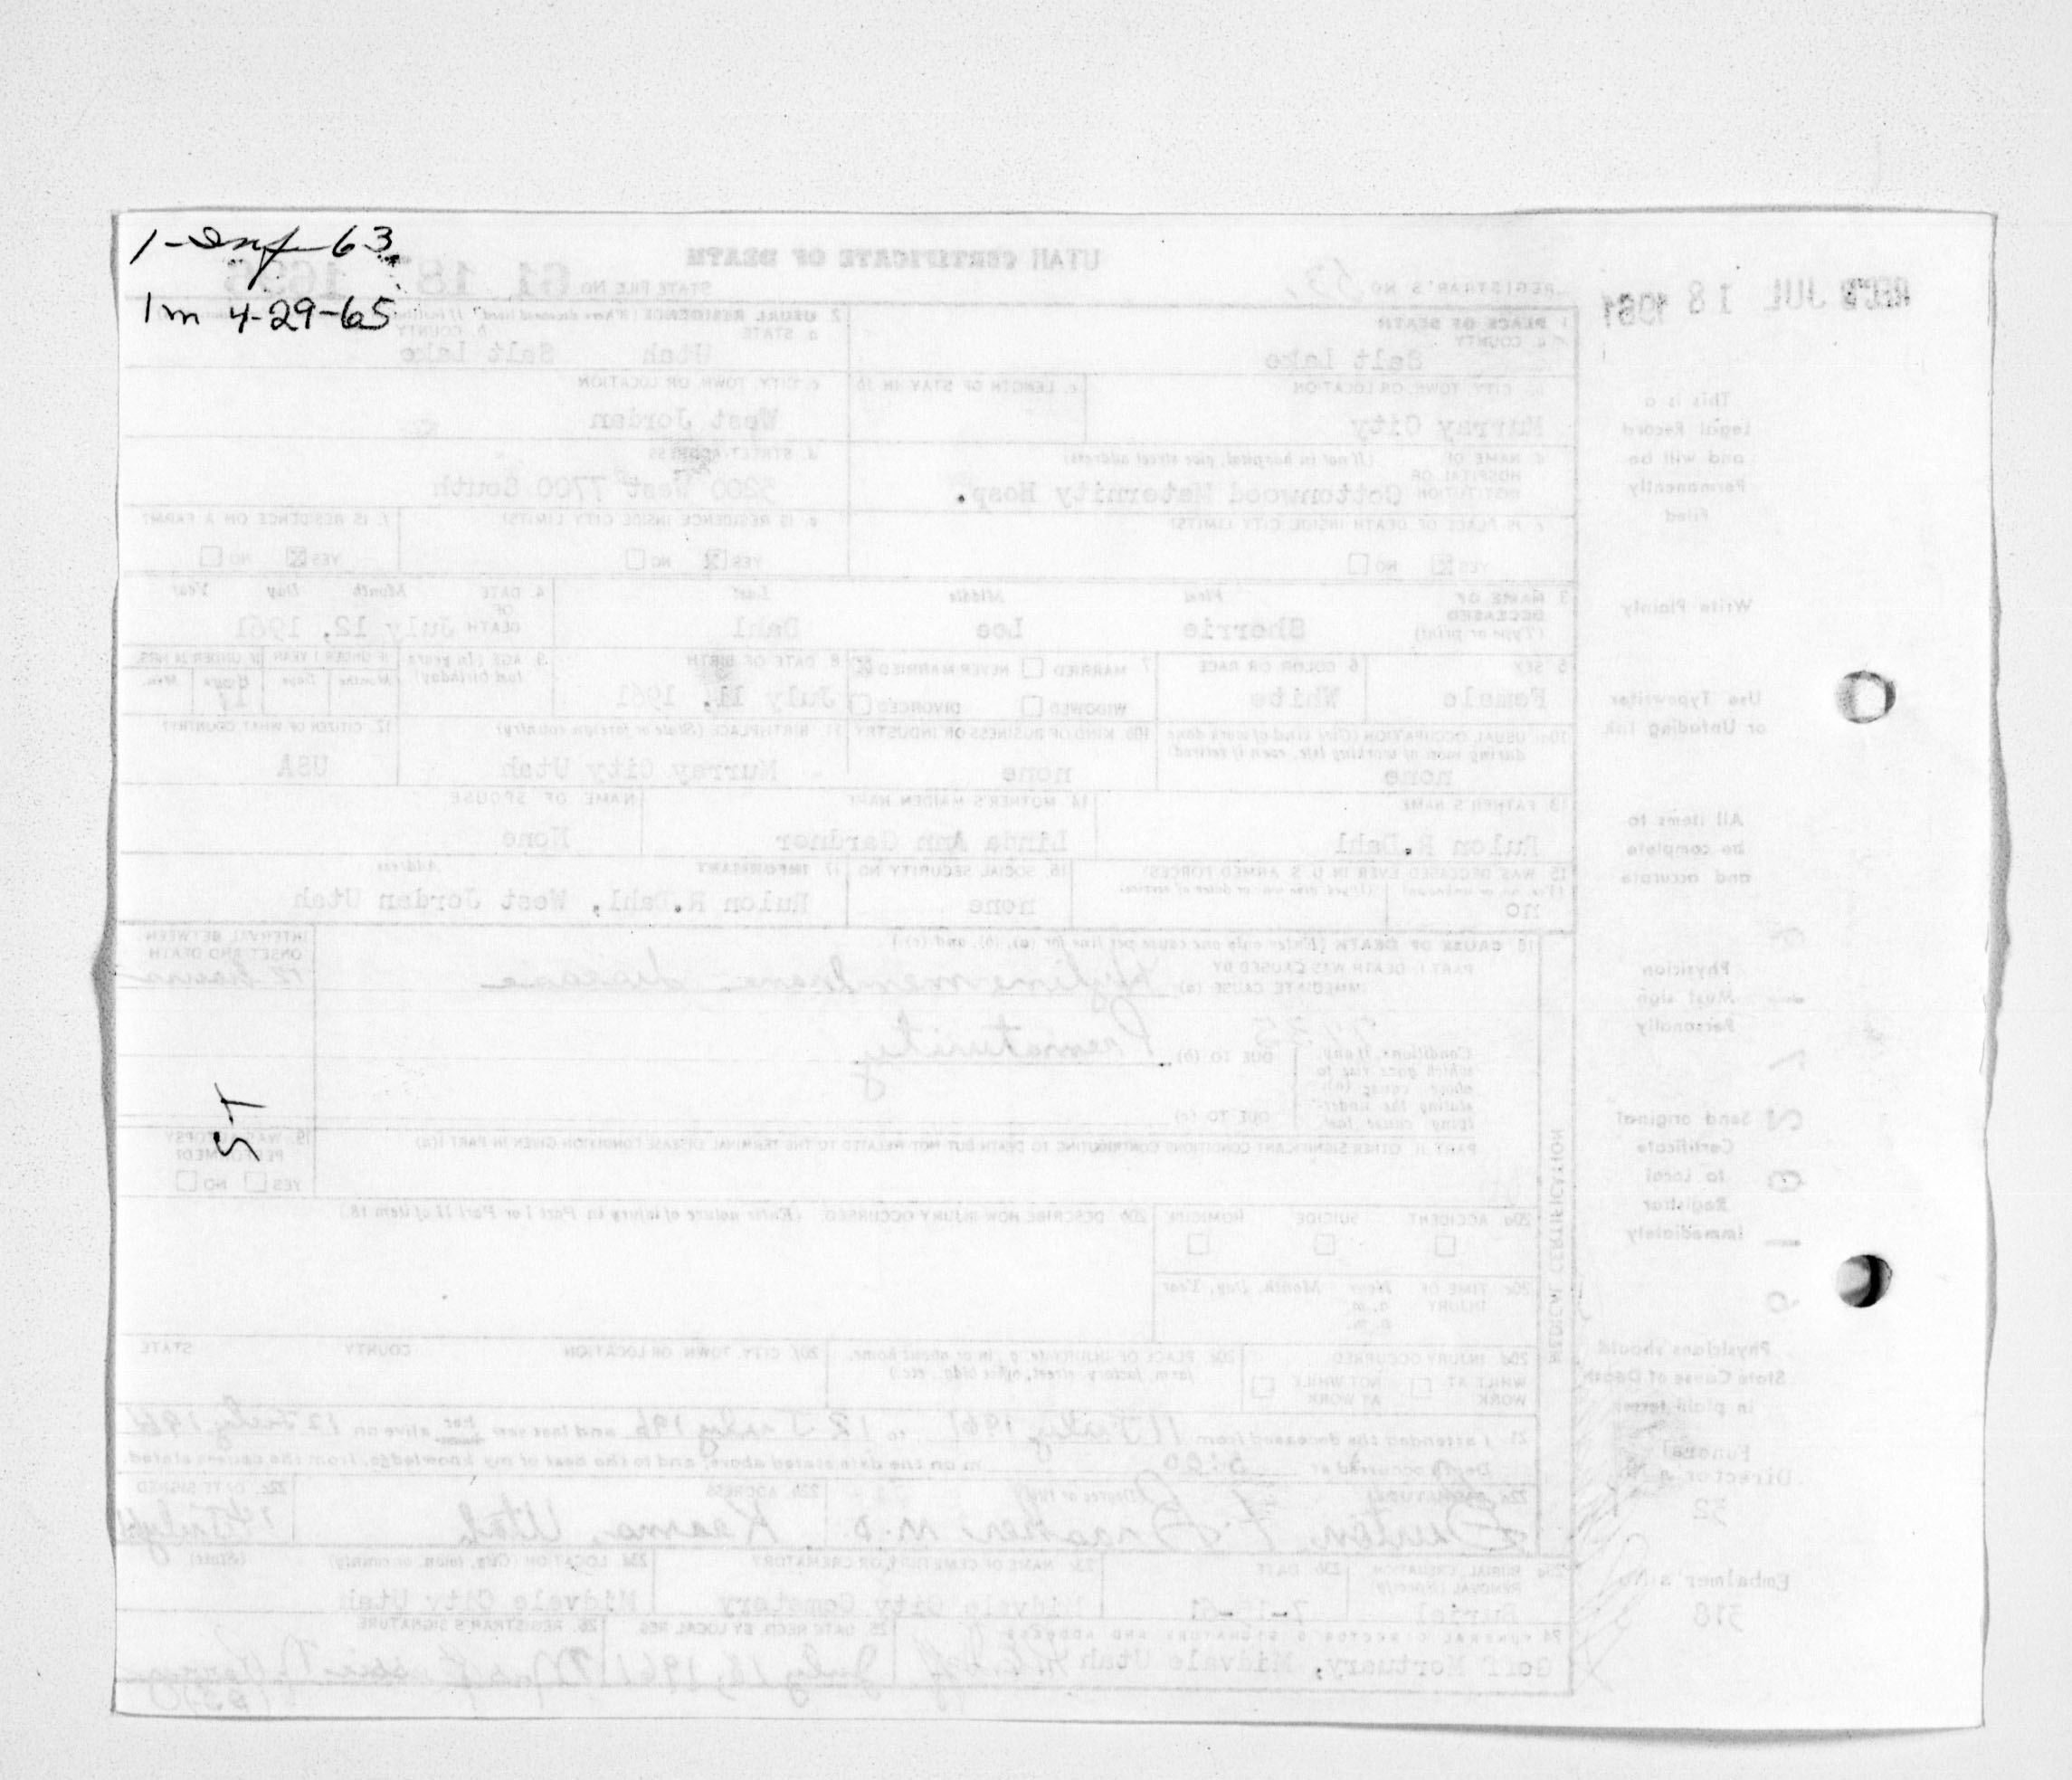 1-Inf-63
1m 4-29-65
REC'D JUL 18 1961
UTAH CERTIFICATE OF DEATH
REGISTRAR'S NO. 53
STATE FILE NO. 61 18
1 PLACE OF DEATH
a. COUNTY
Salt Lake
2 USUAL RESIDENCE
a. STATE
Utah
b. COUNTY
Salt Lake
b. CITY, TOWN, OR LOCATION
Murray City
c. LENGTH OF STAY IN 1b
c. CITY, TOWN, OR LOCATION
West Jordan
d. NAME OF HOSPITAL OR INSTITUTION (If not in hospital, give street address)
Cottonwood Maternity Hosp.
d. STREET ADDRESS
3200 West 7700 South
e. IS PLACE OF DEATH INSIDE CITY LIMITS?
YES X NO
e. IS RESIDENCE INSIDE CITY LIMITS?
YES X NO
f. IS RESIDENCE ON A FARM?
YES X NO
3 NAME OF DECEASED (Type or print)
First Middle Last
Sherrie Lee Dahl
4. DATE OF DEATH
Month Day Year
July 12, 1961
5 SEX
Female
6 COLOR OR RACE
White
7 MARRIED NEVER MARRIED X
WIDOWED DIVORCED
8 DATE OF BIRTH
July 11, 1961
9 AGE (In years last birthday)
IF UNDER 1 YEAR
Months Days
IF UNDER 24 HRS.
Hours Min.
17
10a USUAL OCCUPATION (Give kind of work done during most of working life, even if retired)
none
10b KIND OF BUSINESS OR INDUSTRY
none
11. BIRTHPLACE (State or foreign country)
Murray City Utah
12. CITIZEN OF WHAT COUNTRY?
USA
13 FATHER'S NAME
Rulon R. Dahl
14 MOTHER'S MAIDEN NAME
Linda Ann Gardner
NAME OF SPOUSE
None
15 WAS DECEASED EVER IN U.S. ARMED FORCES?
(Yes, no, or unknown) (If yes, give war or dates of service)
no
16. SOCIAL SECURITY NO.
none
17 INFORMANT Address
Rulon R. Dahl, West Jordan Utah
18 CAUSE OF DEATH [Enter only one cause per line for (a), (b), and (c)]
PART I DEATH WAS CAUSED BY
IMMEDIATE CAUSE (a) Hyline membrane disease
INTERVAL BETWEEN ONSET AND DEATH
12 hours
Conditions, if any, which gave rise to above cause (a), stating the underlying cause last.
DUE TO (b) Prematurity
DUE TO (c)
PART II OTHER SIGNIFICANT CONDITIONS CONTRIBUTING TO DEATH BUT NOT RELATED TO THE TERMINAL DISEASE CONDITION GIVEN IN PART I(a)
19. WAS AUTOPSY PERFORMED?
YES NO
20a ACCIDENT SUICIDE HOMICIDE
20b. DESCRIBE HOW INJURY OCCURRED. (Enter nature of injury in Part I or Part II of item 18.)
20c TIME OF INJURY Hour Month, Day, Year
a.m.
p.m.
20d INJURY OCCURRED
WHILE AT WORK NOT WHILE AT WORK
20e. PLACE OF INJURY (e.g., in or about home, farm, factory, street, office bldg., etc.)
20f CITY, TOWN, OR LOCATION COUNTY STATE
21 I attended the deceased from 11 July 1961 to 12 July 196 and last saw her alive on 12 July 1961
Death occurred at 5:00 m on the date stated above; and to the best of my knowledge, from the causes stated.
22a SIGNATURE (Degree or title)
M.D.
22b. ADDRESS
Kearns, Utah
22c. DATE SIGNED
23a BURIAL, CREMATION, REMOVAL (Specify)
Burial
23b DATE
23c NAME OF CEMETERY OR CREMATORY
Midvale City Cemetery
23d LOCATION (City, town, or county) (State)
Midvale City Utah
24 FUNERAL DIRECTOR'S SIGNATURE AND ADDRESS
Goff Mortuary, Midvale Utah
25. DATE RECD. BY LOCAL REG.
26. REGISTRAR'S SIGNATURE
MEDICAL CERTIFICATION
This is a Legal Record and will be Permanently Filed
Write Plainly
Use Typewriter or Unfading Ink
All items to be complete and accurate
Physician Must sign Personally
Send original Certificate to Local Registrar immediately
Physicians should State Cause of Death in plain terms
Funeral Director's No.
32
Embalmer's No.
318